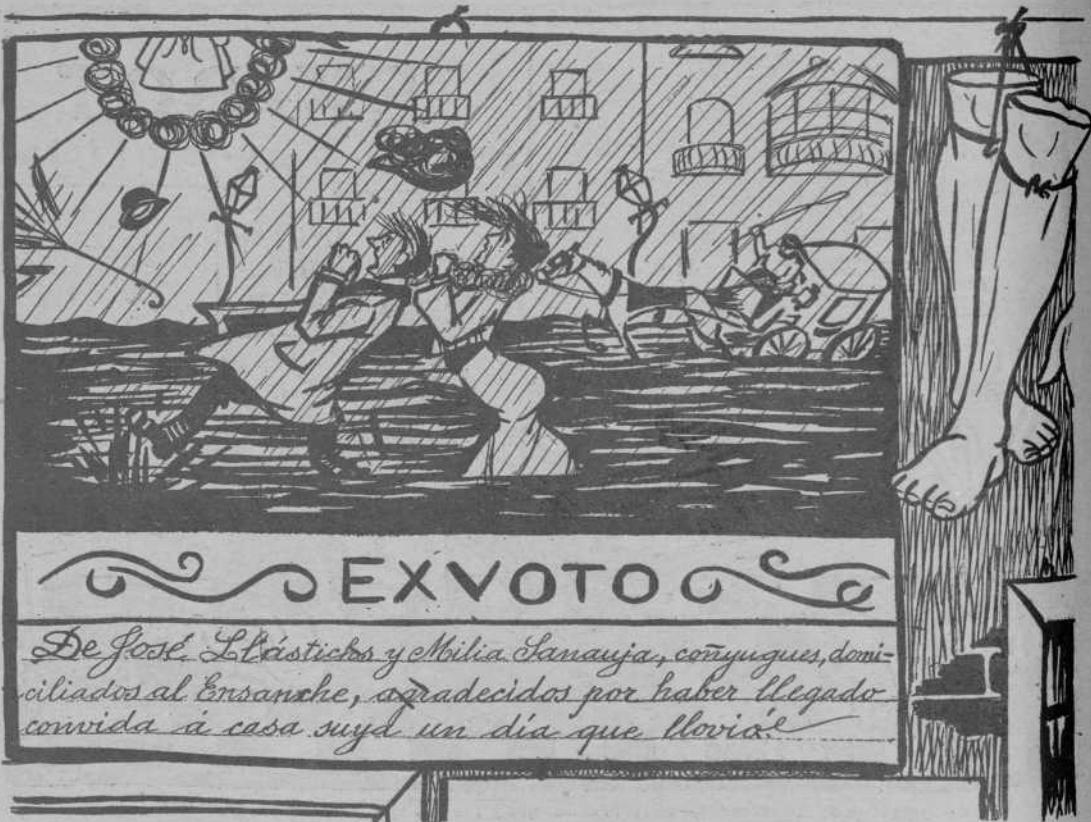 EXVOTO
De José Llástichs y Milia Sanauja, coñyugues, domi-
ciliados al Ensanche, agradecidos por haber llegado
convida á casa suya un día que llovía